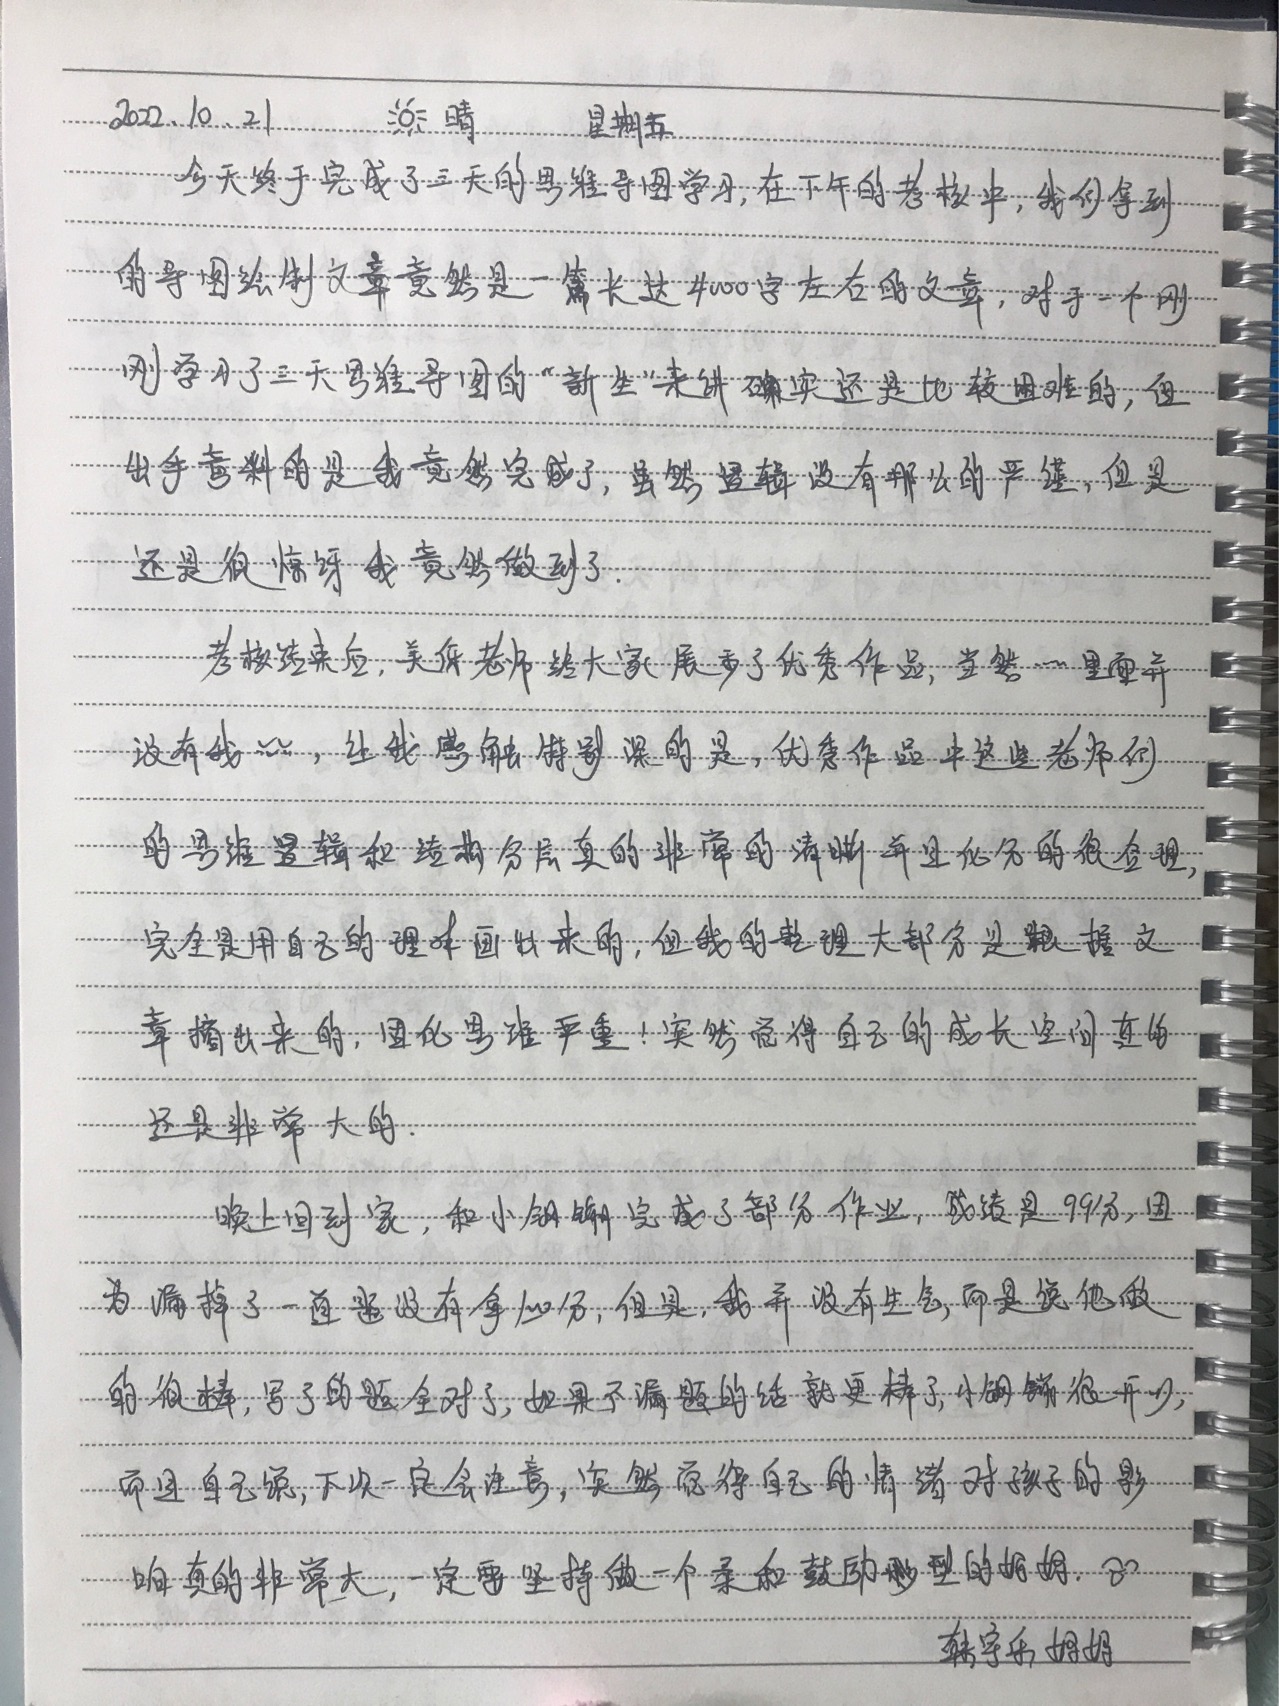 2022.10.21 晴 星期五
今天终于完成了三天的思维导图学习,在下午的考核中,我们拿到
的导图绘制文章竟然是一篇长达4000字左右的文章,对于一个刚
刚学习了三天思维导图的“新生”来讲确实还是比较困难的,但
出乎意料的是我竟然完成了,虽然逻辑没有那么的严谨,但是
还是很惊讶我竟然做到了.
考核结束后,美伢老师给大家展示了优秀作品,当然~~里面并
没有我~~,让我感触特别深的是,优秀作品中这些老师们
的思维逻辑和结构分层真的非常的清晰并且化分的很合理,
完全是用自己的理体画出来的,但我的整理大部分是根据文
章摘出来的,固化思维严重!突然觉得自己的成长空间真的
还是非常大的.
晚上回到家,和小钢镚完成了部分作业,成绩是99分,因
为漏掉了一道题没有拿100分,但是,我并没有生气,而是说他做
的很棒,写了的题全对了,如果不漏题的话就更棒了,小钢镚很开心,
而且自己说,下次一定会注意,突然觉得自己的情绪对孩子的影
响真的非常大,一定要坚持做一个柔和鼓励型的妈妈.
韩宇乐妈妈